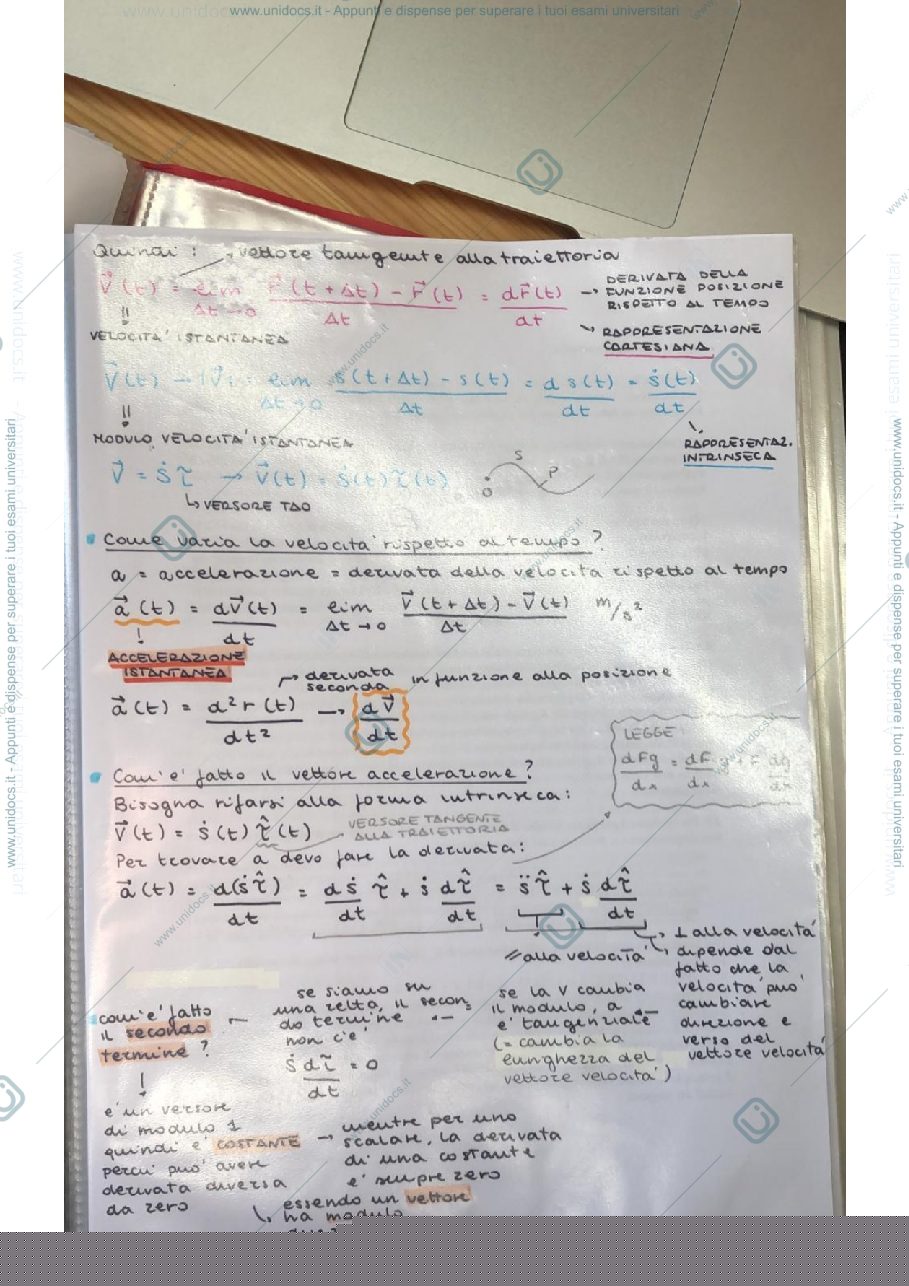 www.unidocs.it - Appunti e dispense per superare i tuoi esami universitari
Quindi : → vettore tangente alla traiettoria
V⃗(t) = lim Δt→0 r⃗(t + Δt) - r⃗(t) / Δt = dr⃗(t)/dt → DERIVATA DELLA
FUNZIONE POSIZIONE
RISPETTO AL TEMPO
VELOCITA' ISTANTANEA
→ RAPPRESENTAZIONE
CARTESIANA
V⃗(t) → |V⃗| = lim Δt→0 s(t + Δt) - s(t) / Δt = d s(t)/dt = ṡ(t)/dt
MODULO VELOCITA' ISTANTANEA
RAPPRESENTAZ.
INTRINSECA
V⃗ = ṡ τ → V⃗(t) = ṡ(t) τ(t)
S
P
O
↳ VERSORE TAO
Come varia la velocità rispetto al tempo ?
a = accelerazione = derivata della velocità rispetto al tempo
a⃗(t) = dV⃗(t)/dt = lim Δt→0 V⃗(t + Δt) - V⃗(t) / Δt m/s²
ACCELERAZIONE
ISTANTANEA
→ derivata
seconda in funzione alla posizione
a⃗(t) = d²r(t)/dt² → dV⃗/dt
LEGGE
dFg/dx = dF/dx g + F dg/dx
Com'e' fatto il vettore accelerazione ?
Bisogna rifarsi alla forma intrinseca :
V⃗(t) = ṡ(t) τ̂(t)
VERSORE TANGENTE
ALLA TRAIETTORIA
Per trovare a devo fare la derivata :
a⃗(t) = d(ṡτ̂)/dt = dṡ/dt τ̂ + ṡ dτ̂/dt = s̈ τ̂ + ṡ dτ̂/dt
// alla velocità
⊥ alla velocità
dipende dal
fatto che la
velocità può
cambiare
direzione e
verso del
vettore velocità
se la V cambia
il modulo, a
e' tangenziale
(= cambia la
lunghezza del
vettore velocità)
se siamo su
una retta, il secon
do termine
non c'e'
ṡ dτ̂/dt = 0
com'e' fatto
il secondo
termine ?
e' un versore
di modulo 1
quindi e' COSTANTE
perciò può avere
derivata diversa
da zero
→ mentre per uno
scalare, la derivata
di una costante
e' sempre zero
↳ essendo un vettore
ha modulo